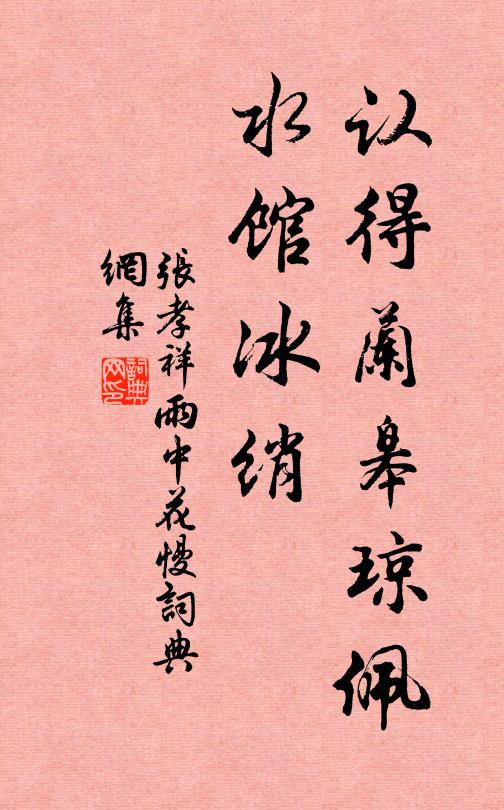 认得蘭皋琼佩
水館冰绡
張孝祥雨中花慢詞典
網集
詞典
网印